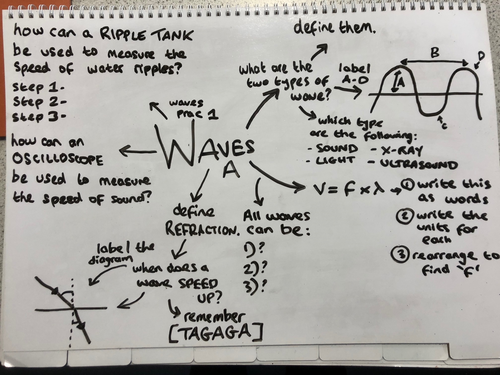 how can a RIPPLE TANK
be used to measure the
speed of water ripples?
Step 1-
Step 2-
Step 3-
how can an
OSCILLOSCOPE
be used to measure
the speed of sound?
waves
prac 1
WAVES
A
define them.
what are the
two types of
wave?
label
A-D
A
B
C
D
which type
are the following:
- SOUND - X-RAY
- LIGHT - ULTRASOUND
V = f x λ
① write this
as words
② write the
units for
each
③ rearrange to
find 'f'
All waves
can be:
1)?
2)?
3)?
define
REFRACTION.
when does a
wave SPEED
UP?
label the
diagram
remember
[TAGAGA]